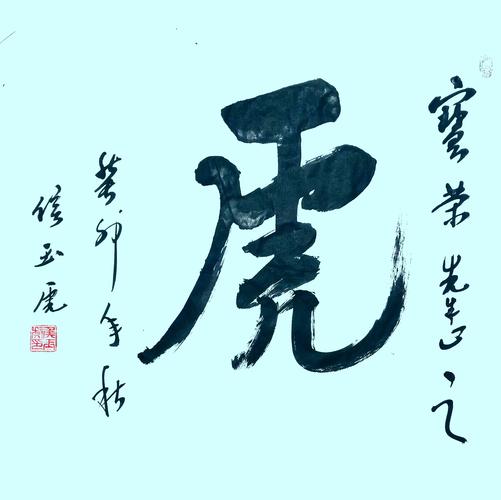 寶榮先生正之
虎
癸卯年秋
侯玉虎